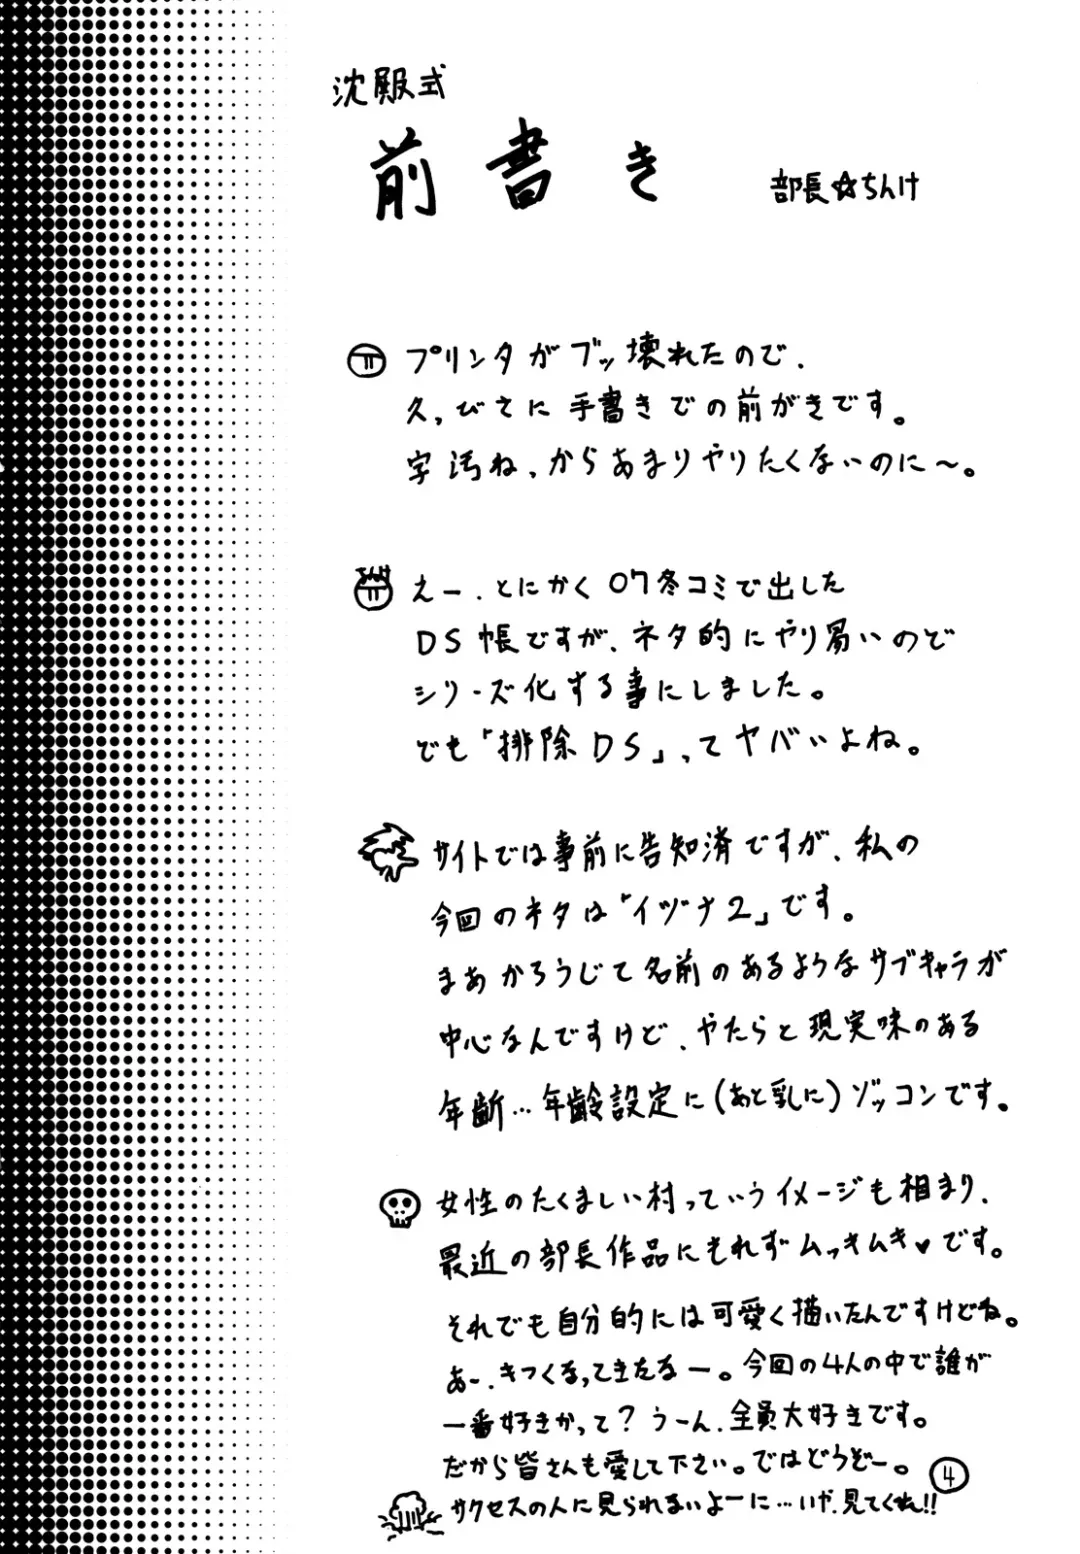 沈殿式
前書き
部長☆ちんけ
プリンタがブッ壊れたので、
久々びさに手書きでの前がきです。
字汚ね、からあまりやりたくないのに〜。
えー、とにかく07冬コミで出した
DS帳ですが、ネタ的にやり易いので
シリーズ化する事にしました。
でも「排除DS」ってヤバいよね。
サイトでは事前に告知済ですが、私の
今回のネタは「イヅナ2」です。
まあかろうじて名前のあるようなサブキャラが
中心なんですけど、やたらと現実味のある
年齢…年齢設定に(あと乳に)ゾッコンです。
女性のたくましい村っていうイメージも相まり、
最近の部長作品にもれずムっキムキ♥です。
それでも自分的には可愛く描いたんですけどね。
あー、きつくなってきたなー。今回の4人の中で誰が
一番好きかって?うーん、全員大好きです。
だから皆さんも愛して下さい。ではどうぞー。
サクセスの人に見られないよーに…いや、見てくれ!!
4